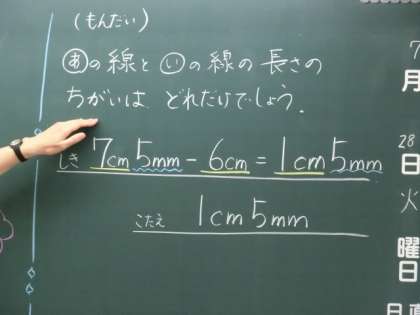 (もんだい)
あの線といの線の長さの
ちがいは どれだけでしょう.
しき 7cm5mm - 6cm = 1cm5mm
こたえ 1cm5mm
7
月
28
日
火
曜
日
日直